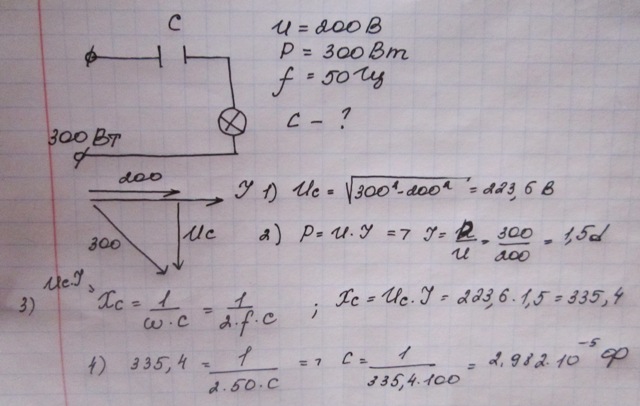 C
U = 200 В
P = 300 Вт
f = 50 Гц
C - ?
300 Вт
200
I
300
Uc
1) Uc = √300² - 200² = 223,6 В
2) P = U · I => I = P/U = 300/200 = 1,5 А
Uc·I
3) Xc = 1/ω·C = 1/2·f·C ; Xc = Uc·I = 223,6 · 1,5 = 335,4
4) 335,4 = 1/2·50·C => C = 1/335,4·100 = 2,982·10⁻⁵ Ф